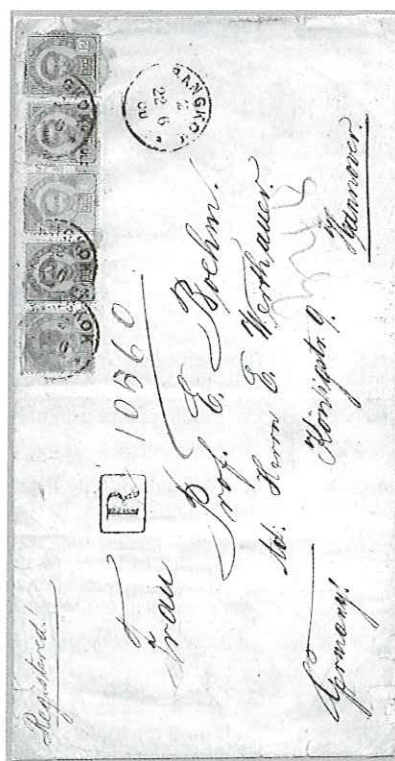 Registered.
R
10560
BANGKOK
2
22 6
00
Frau
Prof. E. Boehm.
Ad: Herrn E. Werthauer.
Königstr. 9.
Hannover.
Germany!